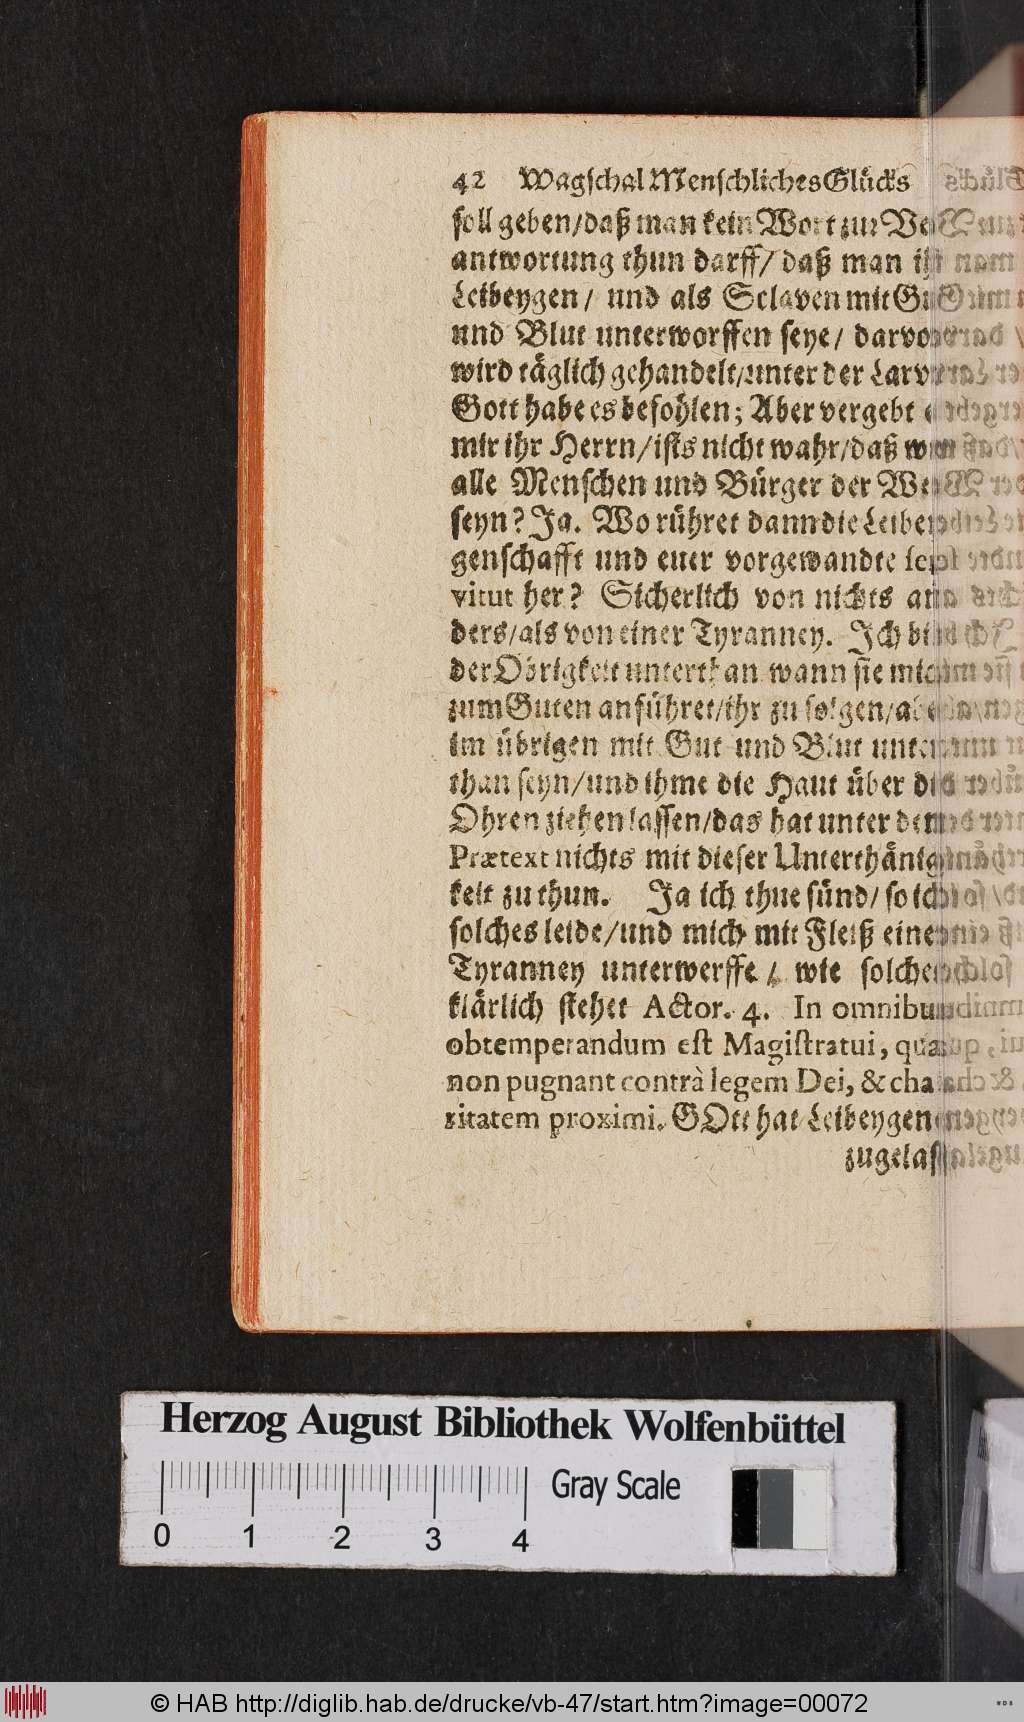 42 Wagschal Menschliches Glücks
soll geben/daß man kein Wort zur Ver
antwortung thun darff/ daß man
Leibeygen/ und als Sclaven mit Gut
und Blut unterworffen seye/ darvon
wird täglich gehandelt/unter der Larv
Gott habe es befohlen; Aber vergebt
mir ihr Herrn/ists nicht wahr/daß wir
alle Menschen und Bürger der Welt
seyn? Ja. Wo rühret dann die Leibey
genschafft und euer vorgewandte
vitut her? Sicherlich von nichts an
ders/als von einer Tyranney. Ich bin
der Obrigkeit unterthan wann sie mich
zum Guten anführet/ihr zu folgen/aber
im übrigen mit Gut und Blut unter
than seyn/und ihme die Haut über die
Ohren ziehen lassen/das hat unter dem
Prætext nichts mit dieser Unterthänig
keit zu thun. Ja ich thue sünd/ so ich
solches leide/und mich mit Fleiß einer
Tyranney unterwerffe/ wie solches
klärlich stehet Actor. 4. In omnibus
obtemperandum est Magistratui, quæ
non pugnant contrà legem Dei, & cha
ritatem proximi. GOtt hat Leibeygen
zugelas
Herzog August Bibliothek Wolfenbüttel
0 1 2 3 4 Gray Scale
© HAB http://diglib.hab.de/drucke/vb-47/start.htm?image=00072